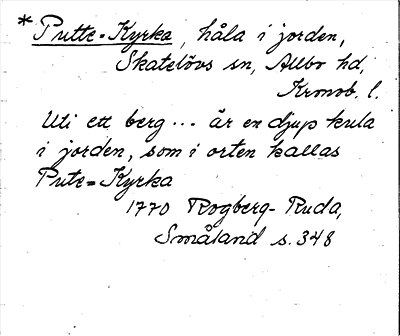 * Putte-Kyrka, håla i jorden,
Skatelövs sn, Allbo hd,
Kronob. l.
Uti ett berg ... är en djup kula
i jorden, som i orten kallas
Pute=Kyrka
1770 Rogberg-Ruda,
Småland s. 348